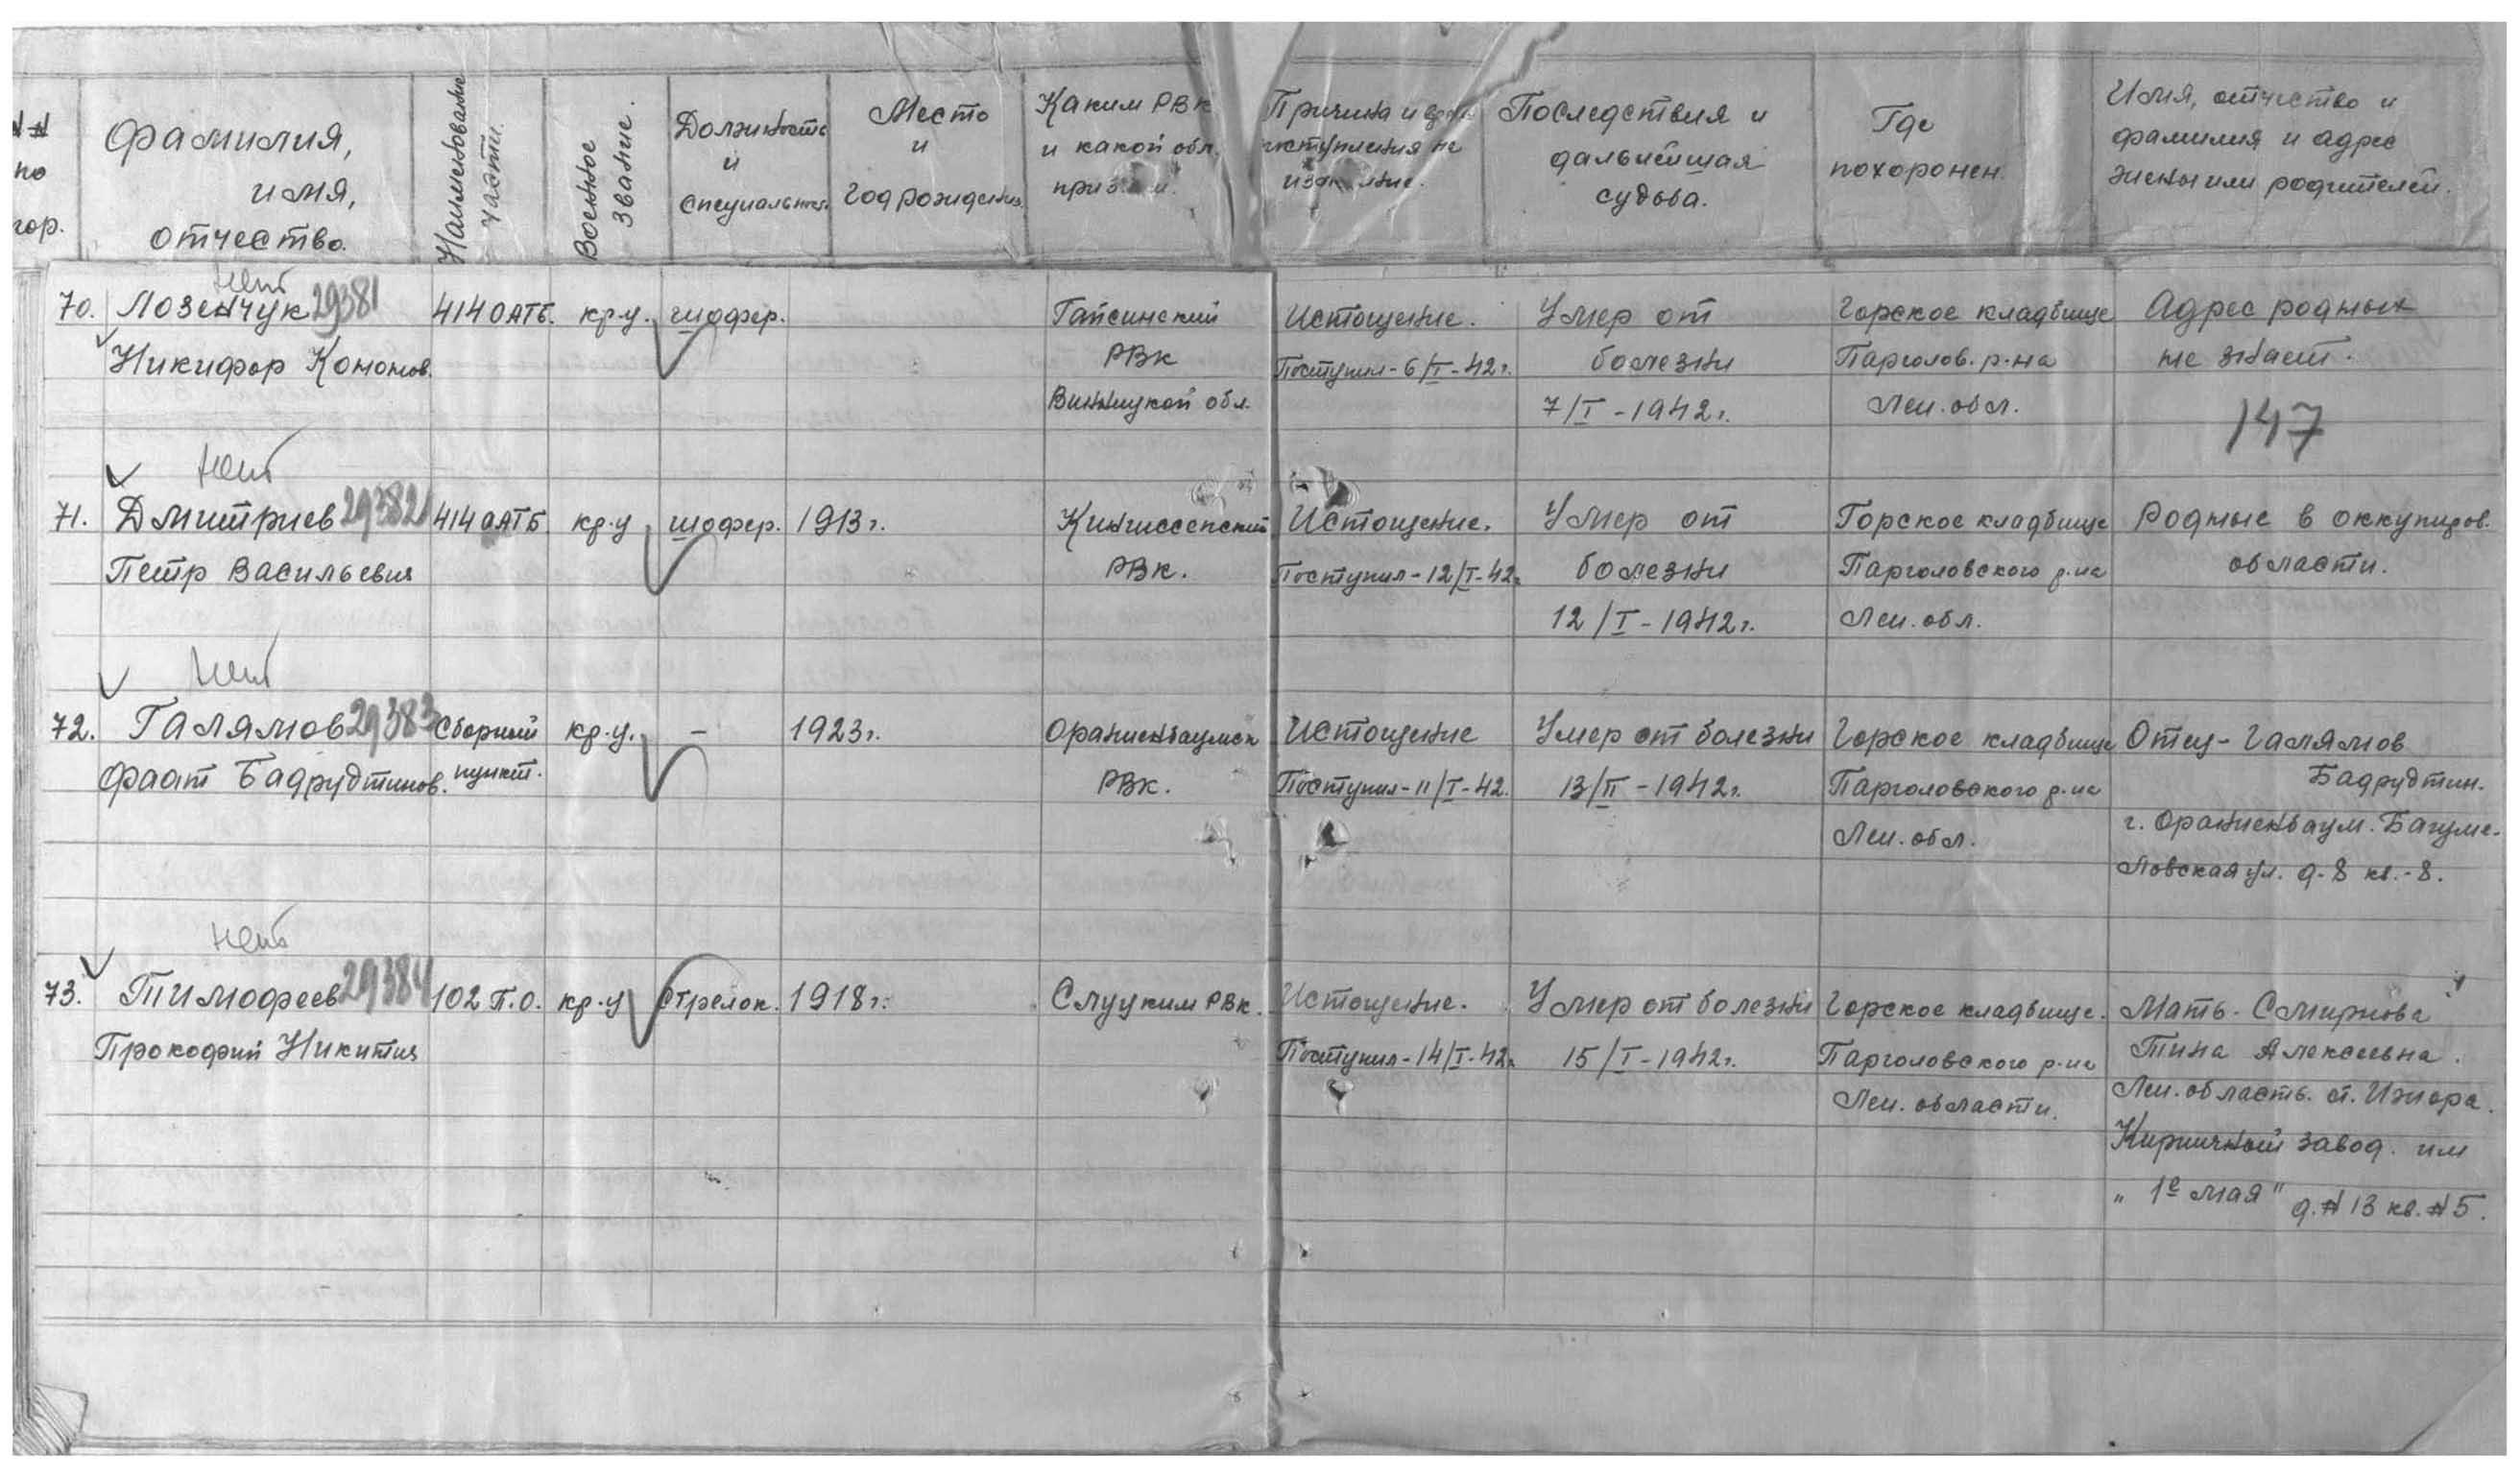 №№ по пор.
Фамилия, имя, отчество.
Наименование части.
Военное звание.
Должность и специальност.
Место и год рождения.
Каким РВК и какой обл.
Причина и
поступления на
Последствия и дальнейшая судьба.
Где похоронен.
Имя, отчество и фамилия и адрес жены или родителей.
нет
70. Лозенчук 29381 414 ОАТБ. кр-ц. шофер. Гайсинский Истощение. Умер от Горское кладбище Адрес родных
Никифор Кононов. РВК Поступил - 6/I - 42г. болезни Парголов. р-на не знает.
Винницкой обл. 7/I - 1942г. Лен. обл.
147
нет
71. Дмитриев 29382 414 ОАТБ кр-ц шофер. 1913г. Кингиссепский Истощение. Умер от Горское кладбище Родные в оккупиров.
Петр Васильевич РВК. Поступил - 12/I - 42г. болезни Парголовского р-на области.
12/I - 1942г. Лен. обл.
нет
72. Галямов 29383 Сборный кр-ц. – 1923г. Ораниенбаумск Истощение Умер от болезни Горское кладбище Отец - Галямов
Фаат Бадрудтинов. пункт. РВК. Поступил - 11/I - 42. 13/II - 1942г. Парголовского р-на Бадрудтин.
Лен. обл. г. Ораниенбаум. Багуме-
ловская ул. д-8 кв.-8.
нет
73. Тимофеев 29384 102 П.О. кр-ц Стрелок. 1918г. Слуцким РВК. Истощение. Умер от болезни Горское кладбище. Мать - Смирнова
Прокофий Никитич Поступил - 14/I - 42г. 15/I - 1942г. Парголовского р-на Тина Алексеевна.
Лен. области. Лен. область. ст. Ижора.
Кирпичный завод. им
„ 1е мая" д. № 13 кв. № 5.